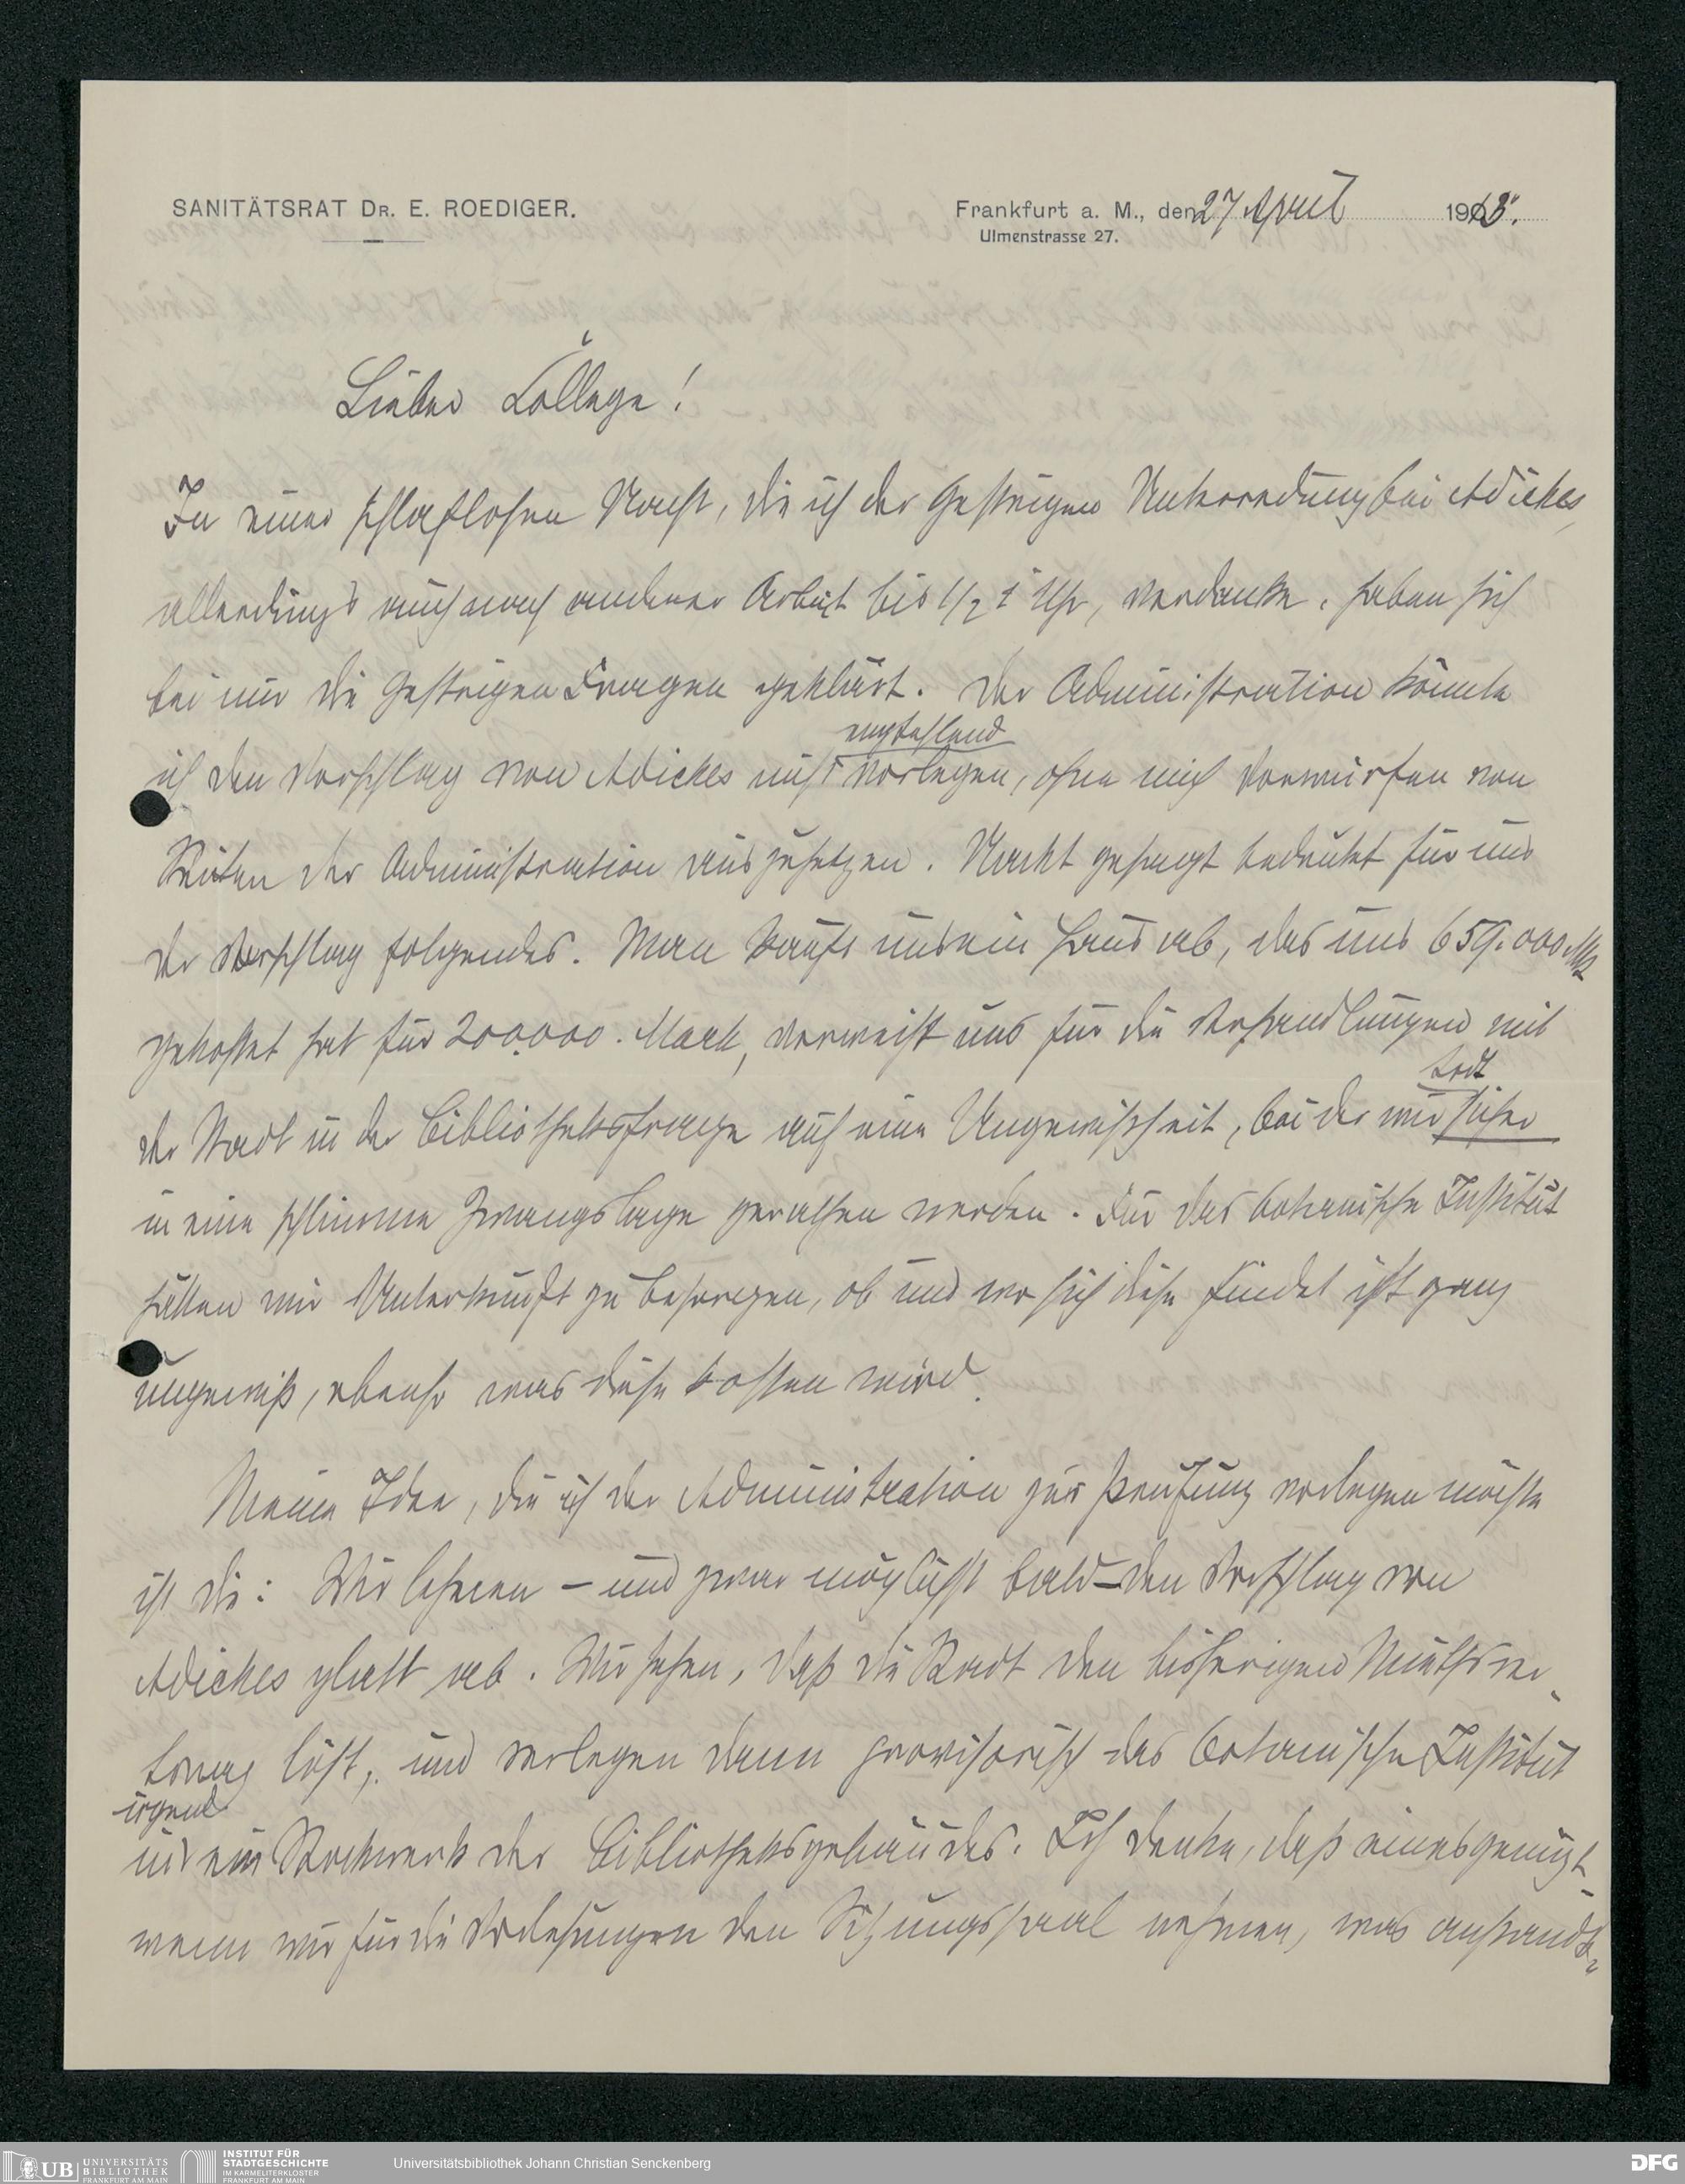 SANITÄTSRAT DR. E. ROEDIGER.
Frankfurt a. M., den 27 April 1913.
Ulmenstrasse 27.
Lieber College!
In einer schlaflosen Nacht, die ich der gestrigen Unterredung bei Adickes,
allerdings auch noch anderer Arbeit bis 1/2 1 Uhr, verdanke, haben sich
bei mir die gestrigen Fragen geklärt. Der Administration könnte
empfehlend
ich den Vorschlag von Adickes nicht vorlegen, ohne mich Vorwürfen von
Seiten der Administration auszusetzen. Nackt gesagt bedeutet für uns
der Vorschlag folgendes. Man kauft uns ein Haus ab, das uns 659.000 Mk
gekostet hat für 200.000. Mark, verweist uns für die Verhandlungen mit
der Stadt in der Bibliotheksfrage auf eine Ungewißheit, bei der wir sicher
in eine schlimme Zwangslage gerathen werden. Für das botanische Institut
hätten wir Unterkunft zu besorgen, ob und wo sich diese findet ist ganz
ungewiß, ebenso was diese kosten wird.
Meine Idee, die ich der Administration zur Prüfung vorlegen möchte
ist die: Wir lehnen – und zwar möglichst bald – den Vorschlag von
Adickes glatt ab. Wir sehen, daß die Stadt den bisherigen Miethsver-
trag löst, und verlegen dann provisorisch das botanische Institut
irgend
in ein Stockwerk des Bibliotheksgebäudes. Ich denke, daß eines genügt,
wenn wir für die Vorlesungen den Sitzungssaal nehmen, was anstands-